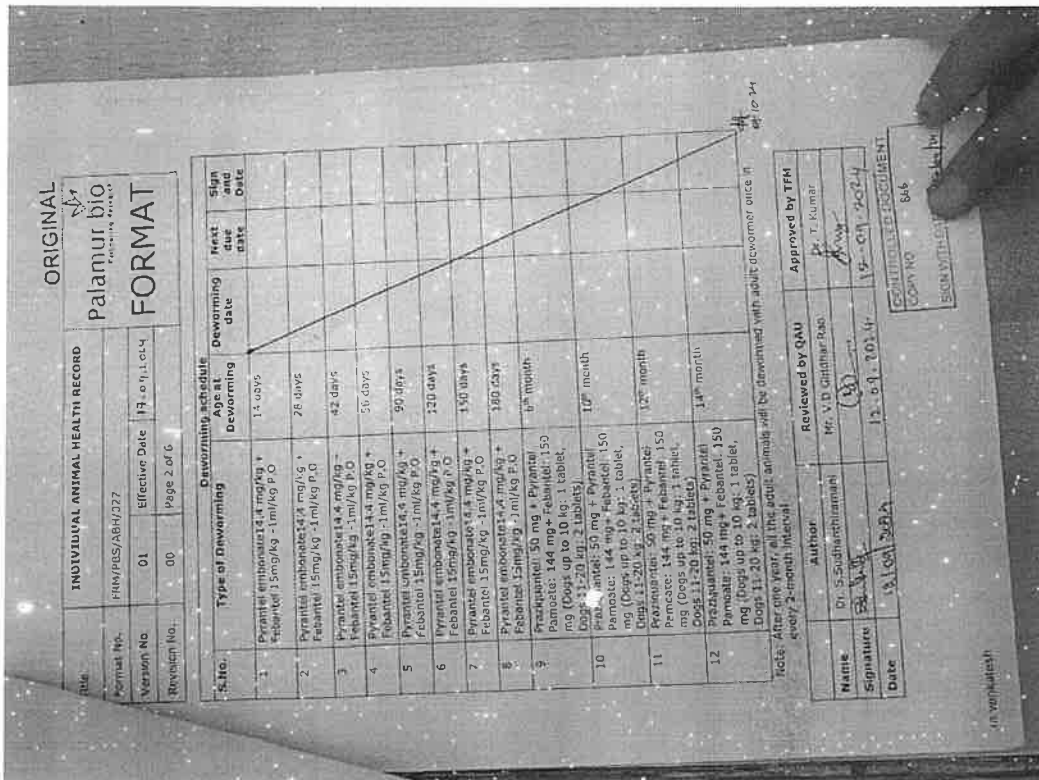 ORIGINAL
Title: INDIVIDUAL ANIMAL HEALTH RECORD
Palamur bio
Format No. FRM/PBS/ABH/J77
FORMAT
Version No. 01 Effective Date 17.09.2024
Revision No. 00 Page 2 of 6
Deworming schedule
S.No. Type of Deworming Age at Deworming Deworming date Next due date Sign and Date
1 Pyrantel embonate14.4 mg/kg + Febantel 15mg/kg -1ml/kg P.O 14 days
2 Pyrantel embonate14.4 mg/kg + Febantel 15mg/kg -1ml/kg P.O 28 days
3 Pyrantel embonate14.4 mg/kg + Febantel 15mg/kg -1ml/kg P.O 42 days
4 Pyrantel embonate14.4 mg/kg + Febantel 15mg/kg -1ml/kg P.O 56 days
5 Pyrantel embonate14.4 mg/kg + Febantel 15mg/kg -1ml/kg P.O 90 days
6 Pyrantel embonate14.4 mg/kg + Febantel 15mg/kg -1ml/kg P.O 120 days
7 Pyrantel embonate14.4 mg/kg + Febantel 15mg/kg -1ml/kg P.O 150 days
8 Pyrantel embonate14.4 mg/kg + Febantel 15mg/kg -1ml/kg P.O 180 days
9 Praziquantel: 50 mg + Pyrantel Pamoate: 144 mg + Febantel: 150 mg (Dogs up to 10 kg: 1 tablet, Dogs 11-20 kg: 2 tablets) 8th month
10 Praziquantel: 50 mg + Pyrantel Pamoate: 144 mg + Febantel: 150 mg (Dogs up to 10 kg: 1 tablet, Dogs 11-20 kg: 2 tablets) 10th month
11 Praziquantel: 50 mg + Pyrantel Pamoate: 144 mg + Febantel: 150 mg (Dogs up to 10 kg: 1 tablet, Dogs 11-20 kg: 2 tablets) 12th month
12 Praziquantel: 50 mg + Pyrantel Pamoate: 144 mg + Febantel: 150 mg (Dogs up to 10 kg: 1 tablet, Dogs 11-20 kg: 2 tablets) 14th month
Note: After one year all the adult animals will be dewormed with adult dewormer once in
every 2-month interval.
Author Reviewed by QAU Approved by TFM
Name Dr. S.Sudhanthiramani Mr. V.D Giridhar Rao Dr. T. Kumar
Signature
Date 12.09.2024 15.09.2024
CONTROLLED DOCUMENT
COPY NO 566
SIGN WITH